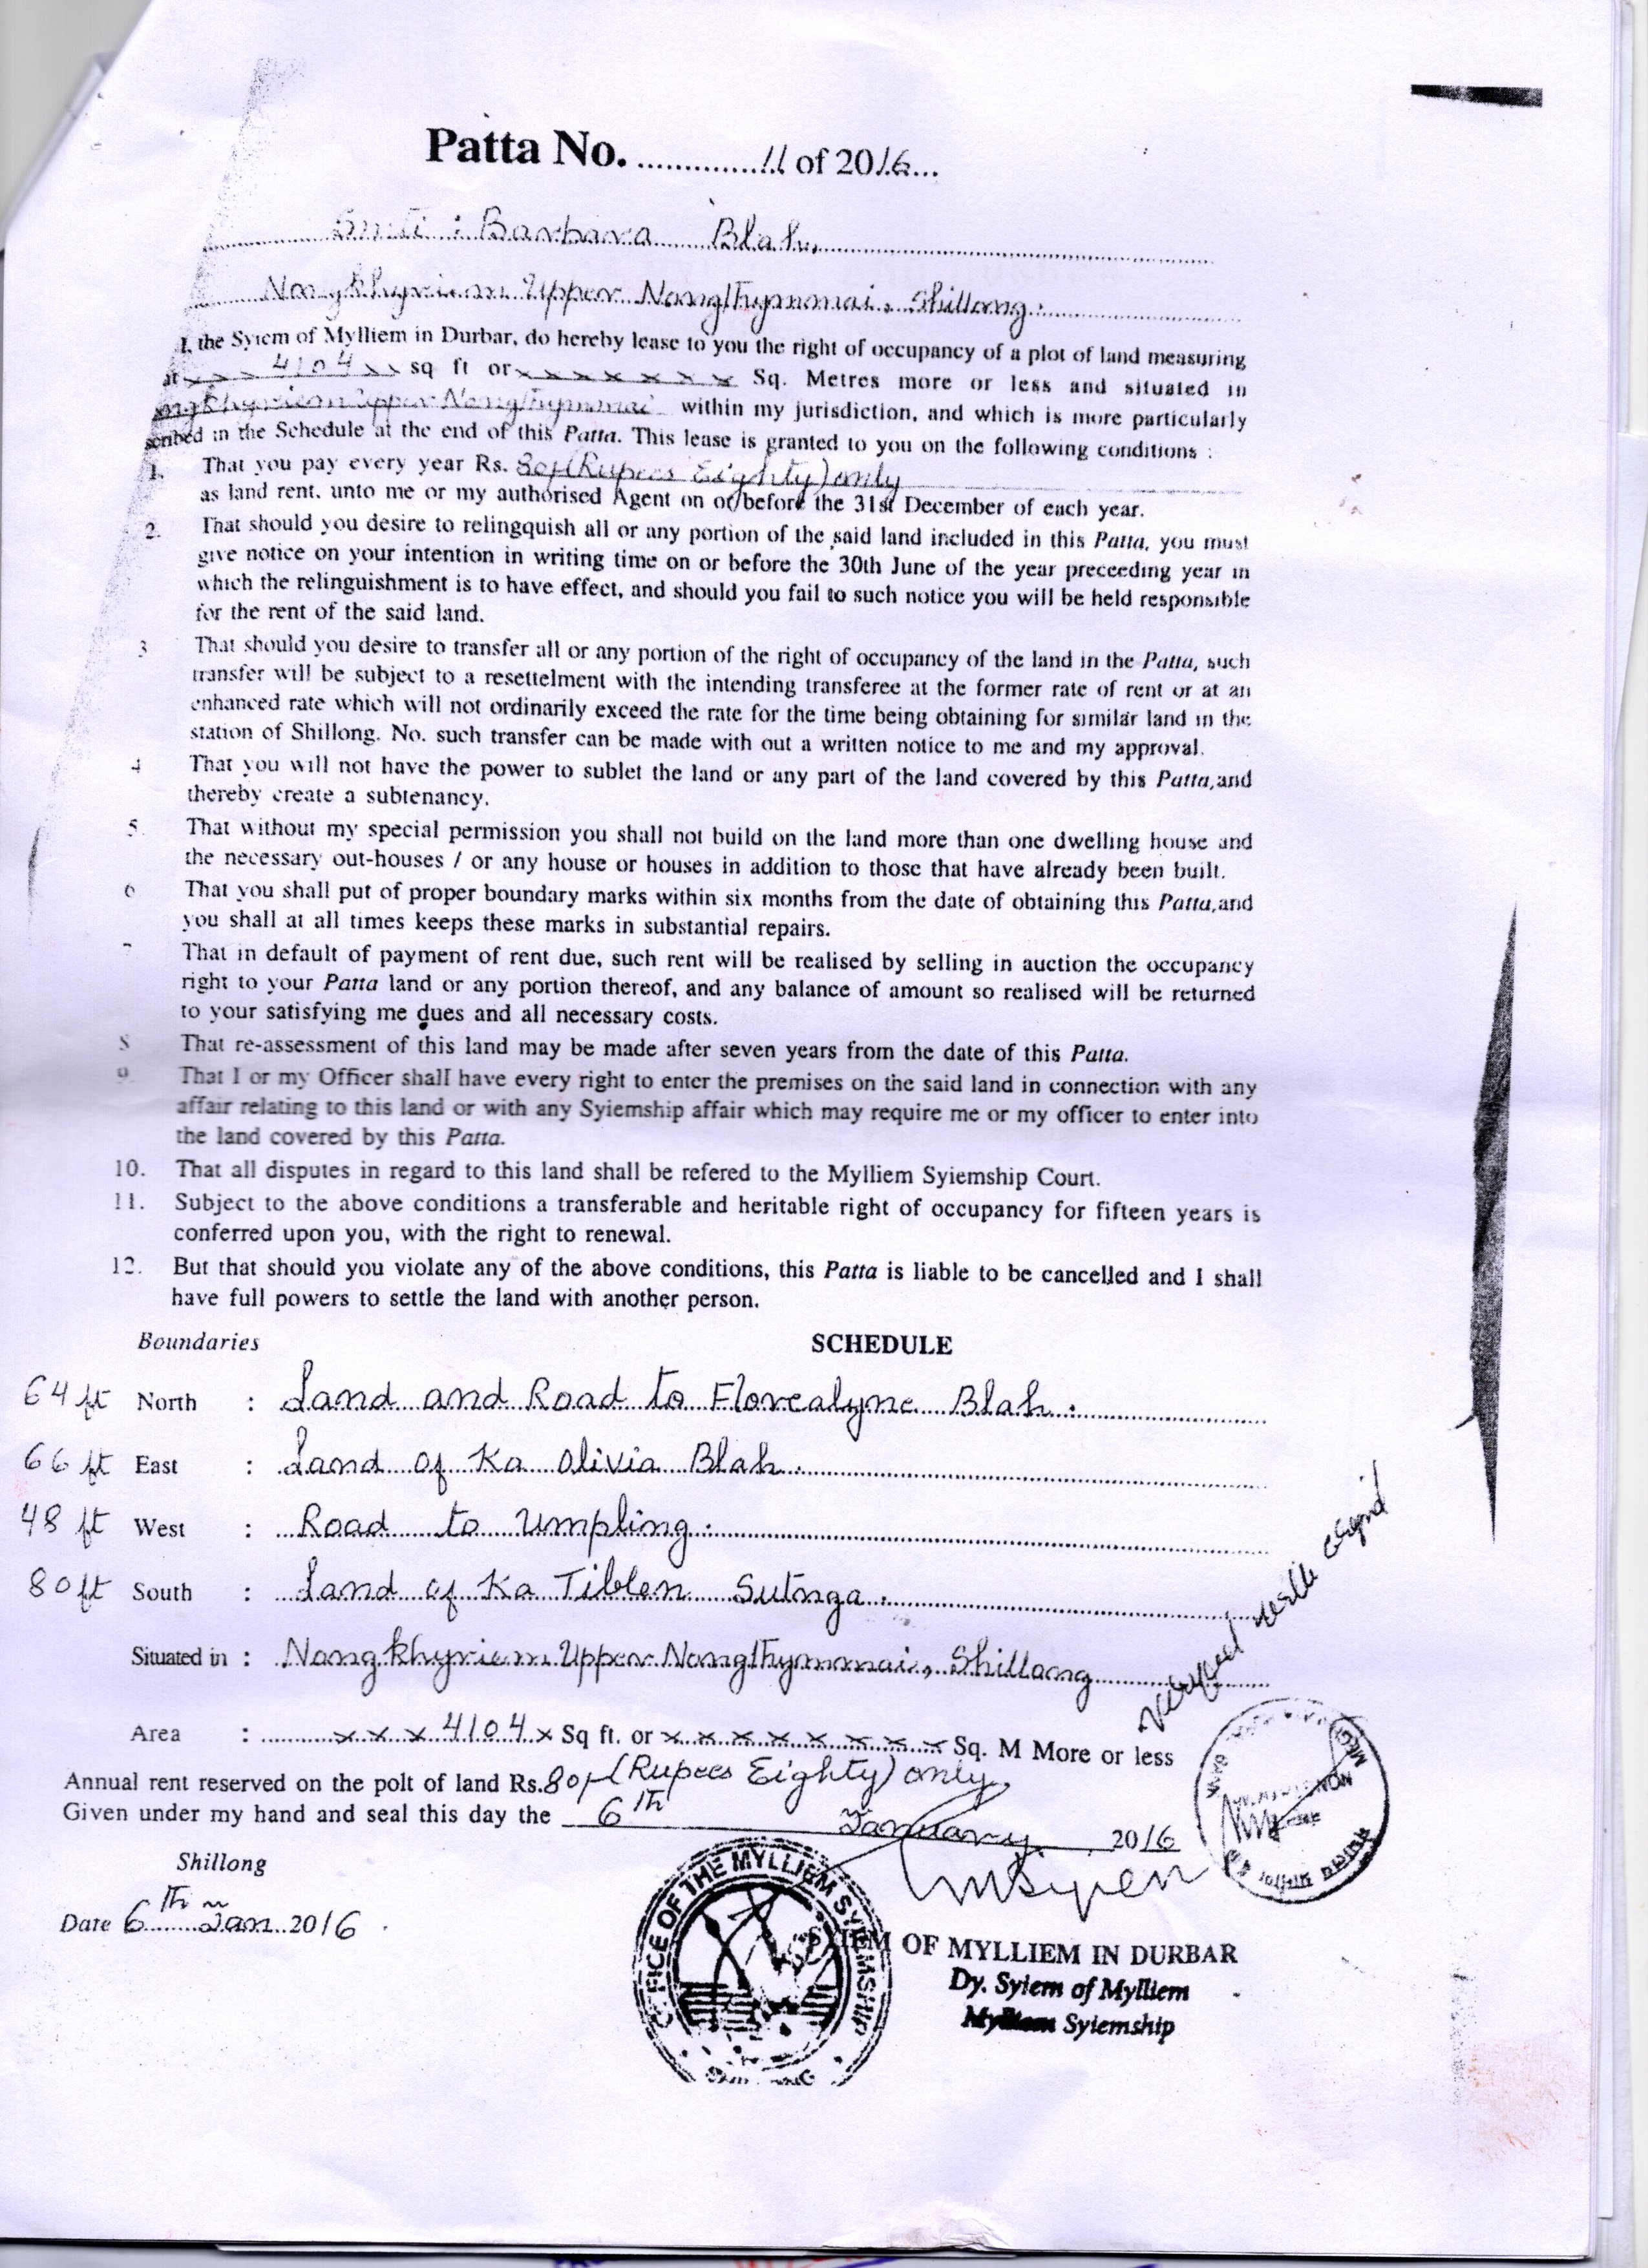 Patta No. ..............11 of 2016...
Smti : Barbara Blah,
Nongkhyriem Upper Nongthymmai, Shillong.
I, the Syiem of Mylliem in Durbar, do hereby lease to you the right of occupancy of a plot of land measuring
at x x x 4104 x x sq ft or x x x x x x x Sq. Metres more or less and situated in
ngkhyriem Upper Nongthymmai within my jurisdiction, and which is more particularly
scribed in the Schedule at the end of this Patta. This lease is granted to you on the following conditions :
1. That you pay every year Rs. 80/-(Rupees Eighty) only
as land rent. unto me or my authorised Agent on or before the 31st December of each year.
2. That should you desire to relingquish all or any portion of the said land included in this Patta, you must
give notice on your intention in writing time on or before the 30th June of the year preceeding year in
which the relinguishment is to have effect, and should you fail to such notice you will be held responsible
for the rent of the said land.
3 That should you desire to transfer all or any portion of the right of occupancy of the land in the Patta, such
transfer will be subject to a resettelment with the intending transferee at the former rate of rent or at an
enhanced rate which will not ordinarily exceed the rate for the time being obtaining for similar land in the
station of Shillong. No. such transfer can be made with out a written notice to me and my approval.
4 That you will not have the power to sublet the land or any part of the land covered by this Patta,and
thereby create a subtenancy.
5. That without my special permission you shall not build on the land more than one dwelling house and
the necessary out-houses / or any house or houses in addition to those that have already been built.
6 That you shall put of proper boundary marks within six months from the date of obtaining this Patta,and
you shall at all times keeps these marks in substantial repairs.
7 That in default of payment of rent due, such rent will be realised by selling in auction the occupancy
right to your Patta land or any portion thereof, and any balance of amount so realised will be returned
to your satisfying me dues and all necessary costs.
8 That re-assessment of this land may be made after seven years from the date of this Patta.
9. That I or my Officer shall have every right to enter the premises on the said land in connection with any
affair relating to this land or with any Syiemship affair which may require me or my officer to enter into
the land covered by this Patta.
10. That all disputes in regard to this land shall be refered to the Mylliem Syiemship Court.
11. Subject to the above conditions a transferable and heritable right of occupancy for fifteen years is
conferred upon you, with the right to renewal.
12. But that should you violate any of the above conditions, this Patta is liable to be cancelled and I shall
have full powers to settle the land with another person.
Boundaries SCHEDULE
64 ft North : Land and Road to Florealyne Blah.
66 ft East : Land of Ka Olivia Blah.
48 ft West : Road to Umpling.
80 ft South : Land of Ka Tiblen Sutnga.
Situated in : Nongkhyriem Upper Nongthymmai, Shillong
Area : x x x 4104 x Sq ft. or x x x x x x x x Sq. M More or less
Annual rent reserved on the polt of land Rs.80/-(Rupees Eighty) only.
Given under my hand and seal this day the 6th January 2016
Shillong
Date 6th Jan 2016 .
OFFICE OF THE MYLLIEM SYIEMSHIP
SHILLONG
SYIEM OF MYLLIEM IN DURBAR
Dy. Syiem of Mylliem
Mylliem Syiemship